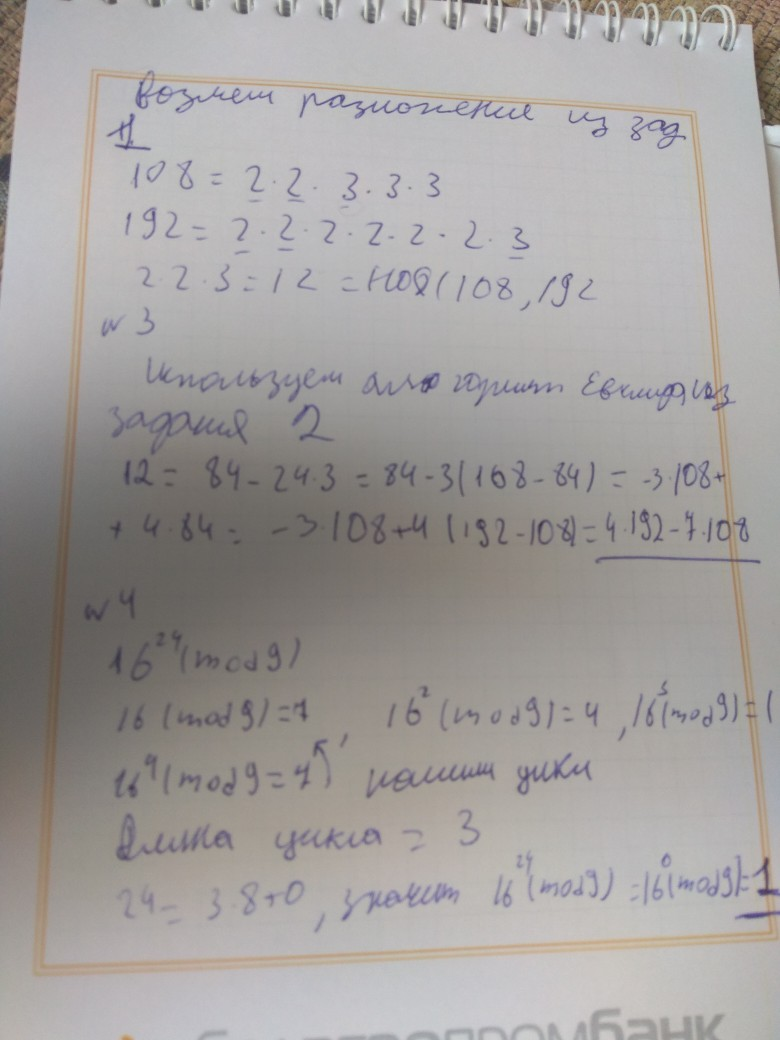 Возмем разложения из зад
1
108 = 2·2·3·3·3
192 = 2·2·2·2·2·2·3
2·2·3 = 12 = НОД(108,192
№3
Используем алгоритм Евклида из
задания 2
12 = 84 - 24·3 = 84 - 3(108 - 84) = -3·108+
+ 4·84 = -3·108+4(192-108) = 4·192-7·108
№4
16²⁴(mod9)
16(mod9)=7, 16²(mod9)=4, 16³(mod9)=1
16⁴(mod9=7), нашли цикл
Длина цикла = 3
24 = 3·8+0, значит 16²⁴(mod9) = 16⁰(mod9)=1